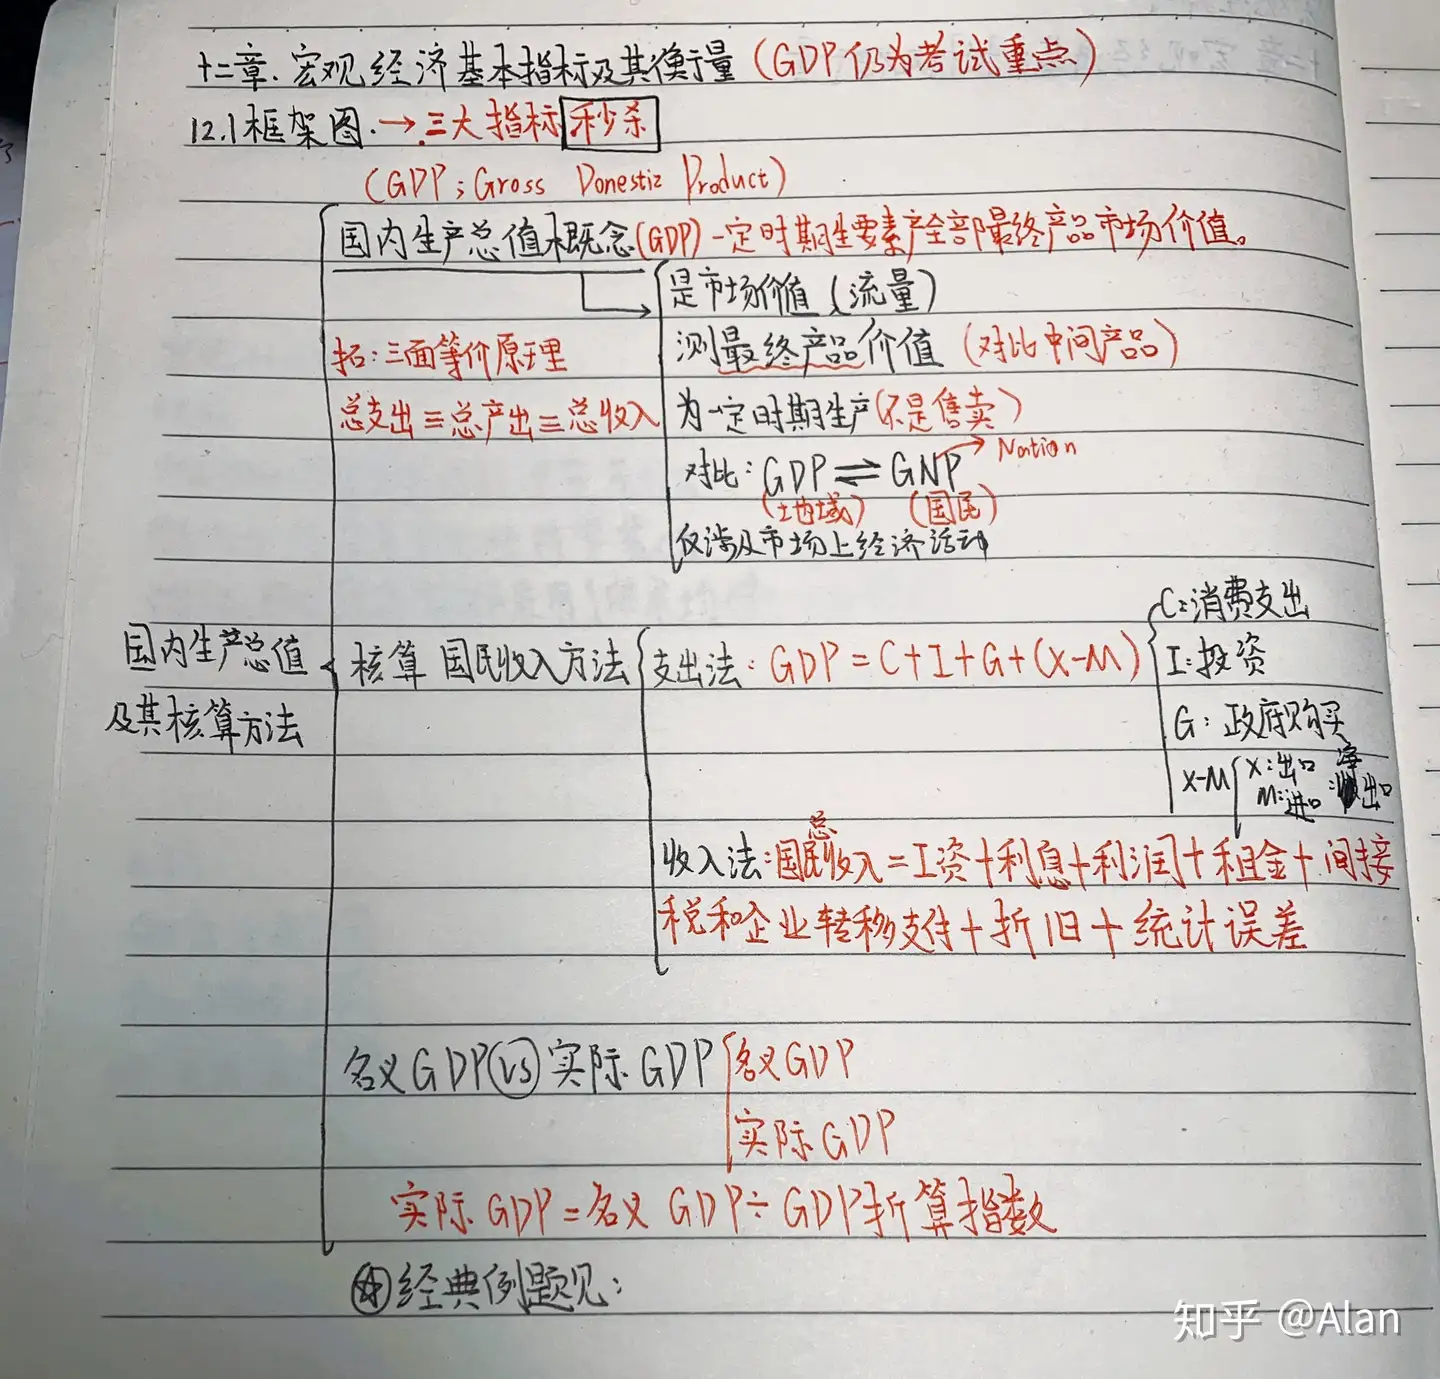 十二章.宏观经济基本指标及其衡量(GDP仍为考试重点)
12.1框架图.→三大指标 秒杀
(GDP;Gross Donestiz Product)
国内生产总值概念(GDP)一定时期生要素产全部最终产品市场价值。
是市场价值(流量)
测最终产品价值(对比中间产品)
拓:三面等价原理
总支出≡总产出≡总收入
为一定时期生产(不是售卖)
对比:GDP⇌GNP→Nation
(地域) (国民)
仅涉及市场上经济活动
国内生产总值
及其核算方法
核算国民收入方法
支出法:GDP=C+I+G+(X-M)
C:消费支出
I:投资
G:政府购买
X-M
X:出口
M:进口
:净出口
收入法:国民总收入=工资+利息+利润+租金+间接
税和企业转移支付+折旧+统计误差
名义GDP vs 实际GDP
名义GDP
实际GDP
实际GDP=名义GDP÷GDP折算指数
☆经典例题见:
知乎 @Alan